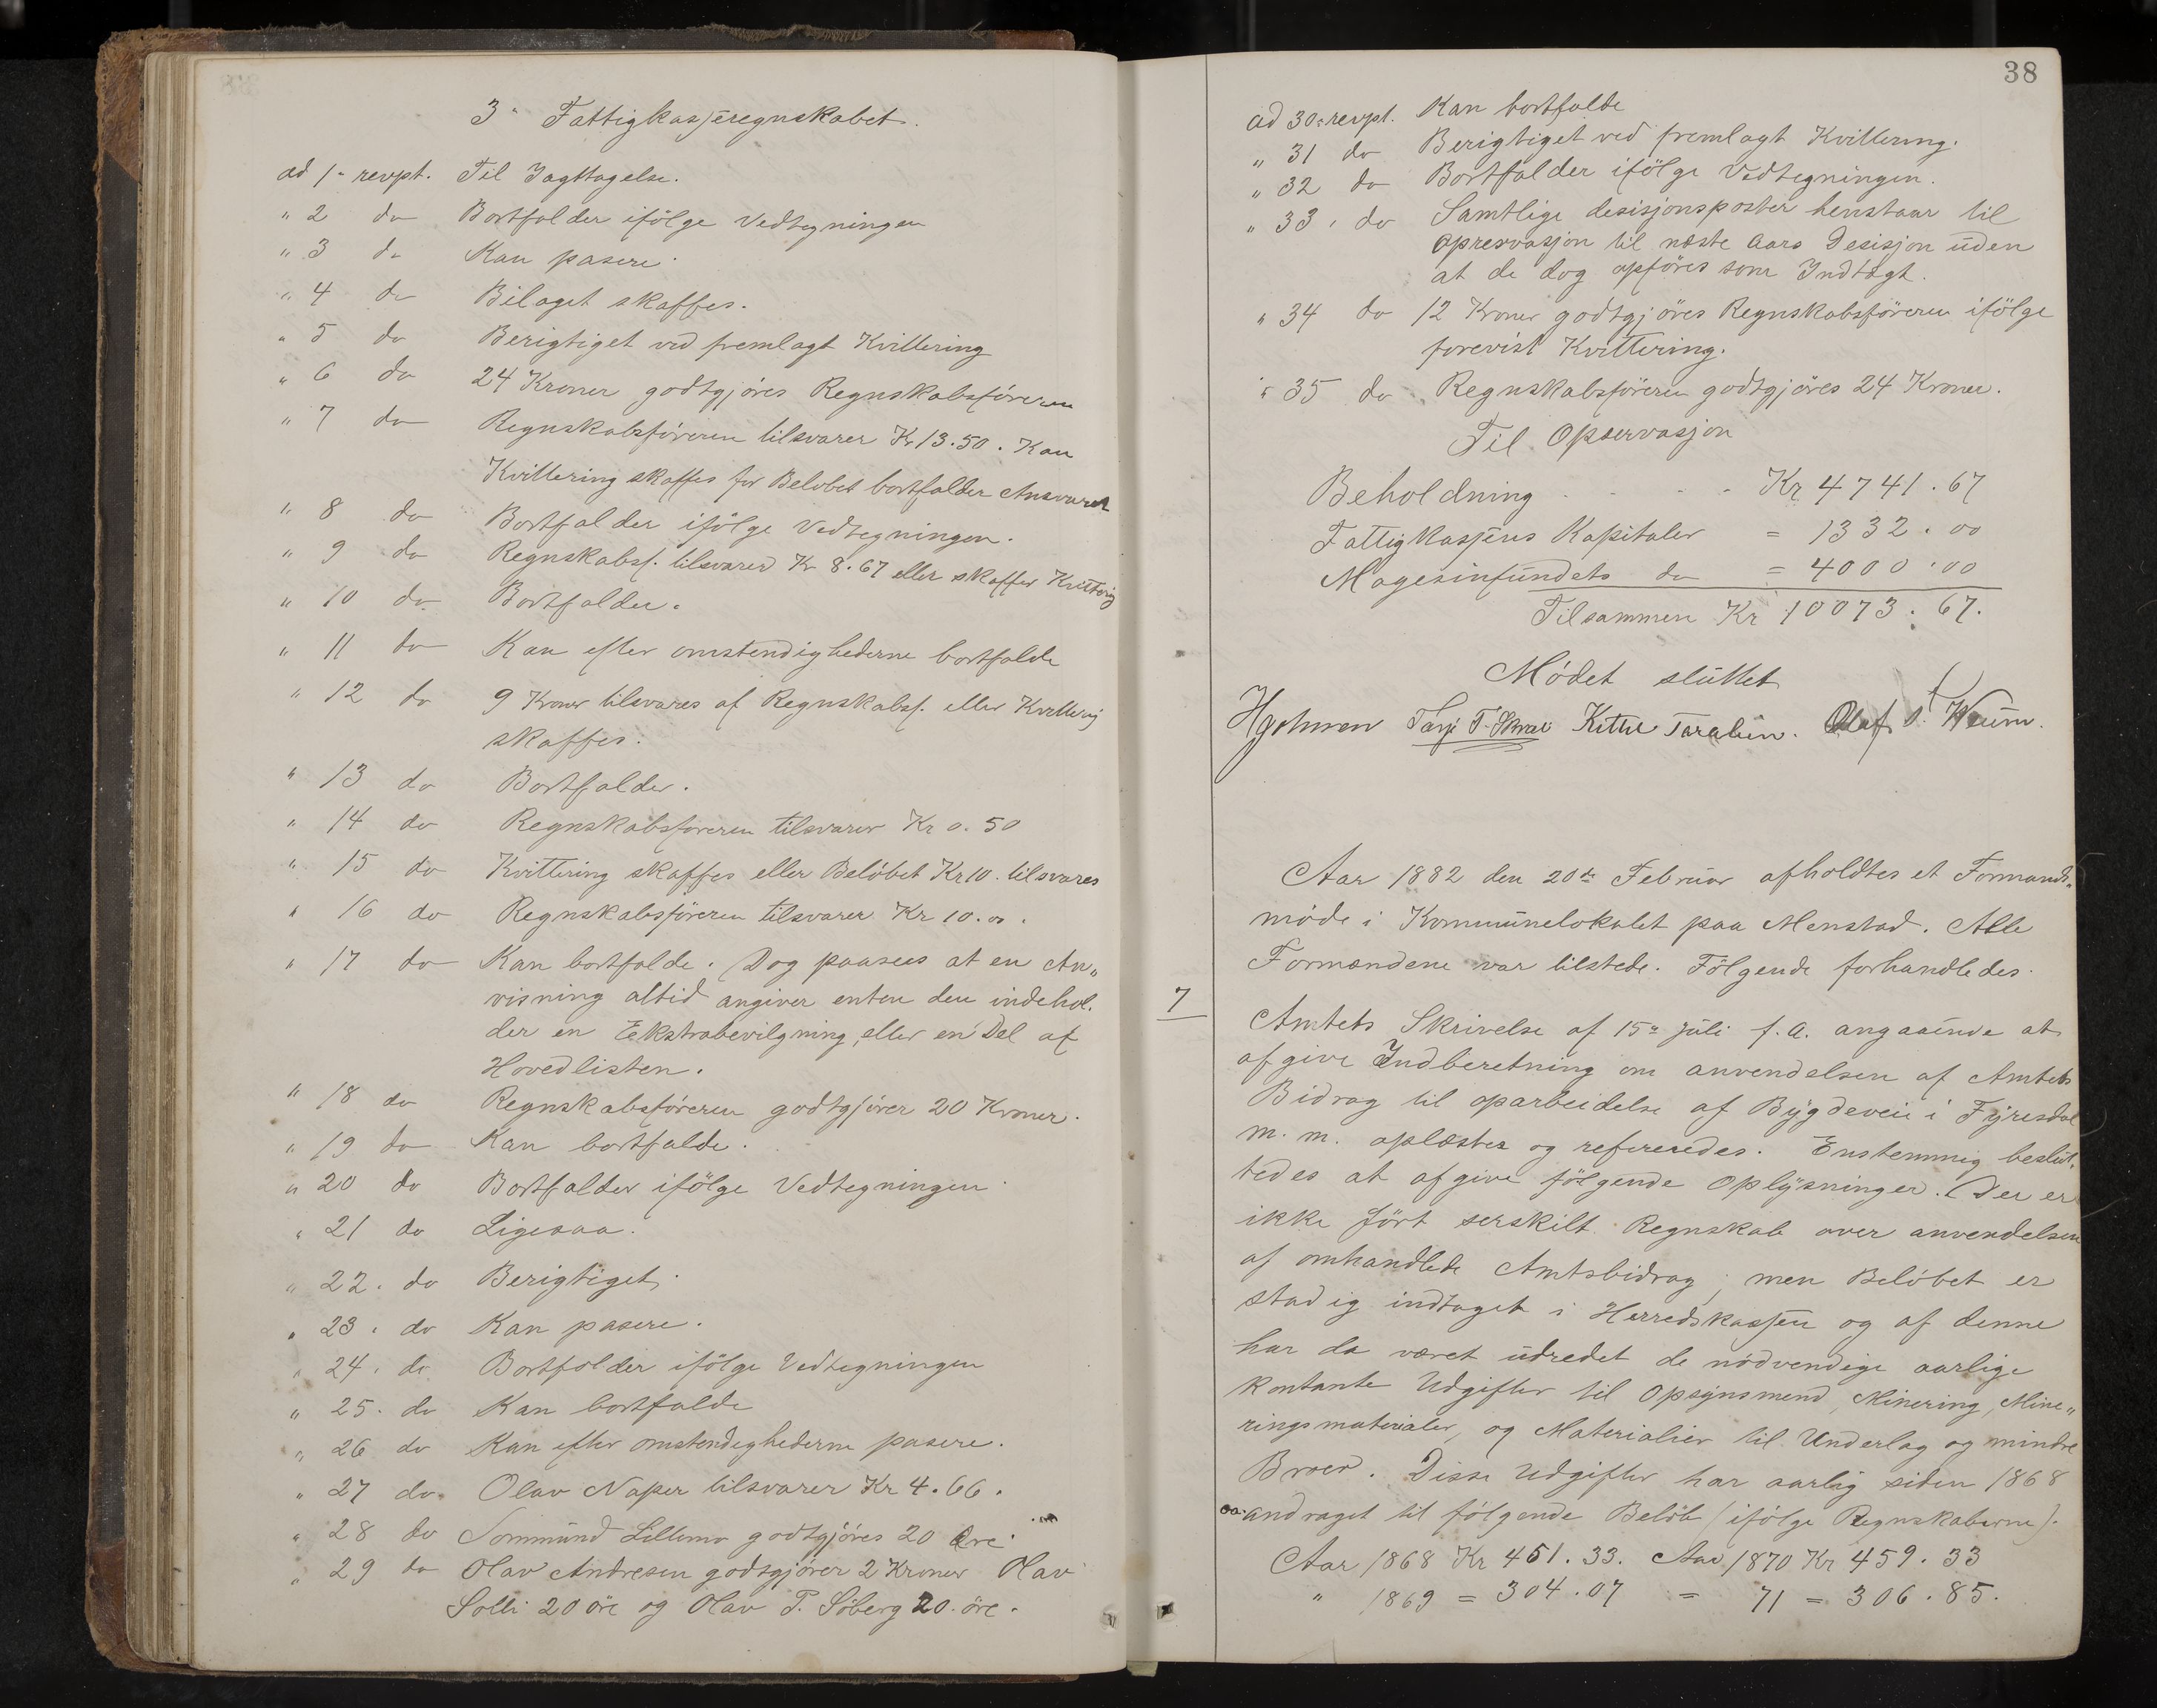 3. Fattigkasseregnskabet.
ad 1. revpt. Til Iagttagelse.
" 2 do Bortfalder ifölge Vedtegningen
" 3 do Kan pasere.
" 4 do Bilaget skaffes.
" 5 do Berigtiget ved fremlagt Kvittering
" 6 do 24 Kroner godtgjöres Regnskabsföreren
" 7 do Regnskabsföreren tilsvarer Kr 13.50. Kan
Kvittering skaffes for Belöbet bortfalder Ansvaret
" 8 do Bortfalder ifölge Vedtegningen.
" 9 do Regnskabsf. tilsvarer Kr 8.67 eller skaffer Kvittering
" 10 do Bortfalder.
" 11 do Kan efter omstendighederne bortfalde
" 12 do 9 Kroner tilsvares af Regnskabsf. eller Kvittering
skaffes.
" 13 do Bortfalder.
" 14 do Regnskabsföreren tilsvarer Kr 0.50
" 15 do Kvittering skaffes eller Belöbet Kr 10. tilsvares
" 16 do Regnskabsföreren tilsvarer Kr 10.00.
" 17 do Kan bortfalde. Dog paasees at en An„
visning altid angiver enten den indehol.
der en Eekstrabevilgning, eller en Del af
Hovedlisten.
" 18 do Regnskabsföreren godtgjörer 20 Kroner.
" 19 do Kan bortfalde.
" 20 do Bortfalder ifölge Vedtegningen
" 21 do Ligesaa.
" 22. do Berigtiget.
" 23. do Kan pasere.
" 24. do Bortfolder ifölge Vedtegningen
" 25. do Kan bortfalde
" 26 do Kan efter omstendeghederne pasere.
" 27 do. Olav Naper tilsvarer Kr 4.66.
" 28 do Sommund Lillemo godtgjöres 20 Öre.
" 29 do Olav Andresen godtgjörer 2 Kroner Olav
Solli 20 öre og Olav T. Söberg 20 öre.
38
ad 30. revpt. Kan bortfalde
" 31 do Berigtiget ved fremlagt Kvittering.
" 32 do Bortfalder ifölge Vedtegningen.
" 33. do Samtlige desisjonsposter henstaar til
opresvasjon til næste Aars Desisjon uden
at de dog opföres som Indtægt.
" 34 do 12 Kroner godtgjöres Regnskabsföreren ifölge
forevist Kvittering.
" 35 do Regnskabsföreren godtgjöres 24 Kroner.
Til Opservasjon
Beholdning . . . . Kr 4741.67
Fattigkassens Kapitaler = 1332.00
Magesinfundets do = 4000.00
Tilsammen Kr 10073.67.
Mödet sluttet
Kittil Olaf
Aar 1882 den 20de Februar afholdtes et Formands„
möde i Kommunelokalet paa Menstad. Alle
Formændene var tilstede. Fölgende forhandledes.
7
Amtets Skrivelse af 15de Juli f.a. angaaende at
afgive Indberetning om anvendelsen af Amtets
Bidrag til oparbeidelse af Bygdeveie i Fyresdal
m.m. oplæstes og refereredes. Enstemmig beslut„
tedes at afgive fölgende Oplysninger. Der er
ikke fört serskilt Regnskab over anvendelsen
af omhandlede Amtsbidrag; men Belöbet er
stadig indtaget i Herredskassen og af denne
har da været udredet de nödvendige aarlige
kontante Udgifter til Opsynsmend, Minering, Mine„
ringsmaterialer, og Materialier til Underlag og mindre
Broer. Disse Udgifter har aarlig siden 1868
andraget til fölgende Belöb (ifölge Regnskaberne).
Aar 1868 Kr 451.33. Aar 1870 Kr 459.33
" 1869 = 304.07 = 71 = 306.85.